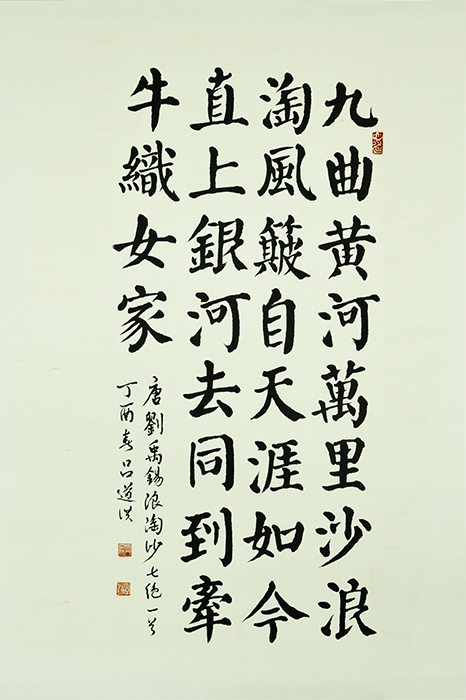 九曲黄河萬里沙浪
淘風簸自天涯如今
直上銀河去同到牽
牛織女家
唐劉禹錫浪淘沙七絕一首
丁酉春吕道洪